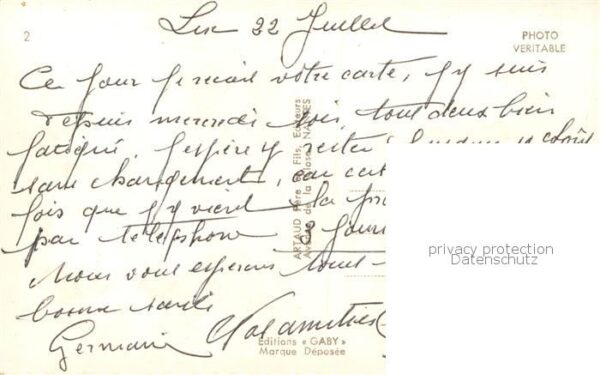 2
22 Juillet
PHOTO
VERITABLE
Ce jour je reçois votre carte, j'y suis
depuis mercredi soir, tout deux bien
fatigué, j'espère y rester
sans changement, car
fois que j'y vient la
par telephone 3 jours
Nous vous esperons tous
bonne santé
Germaine
ARTAUD Père & Fils, Editeurs
Avenue de la Close, NANTES
Editions « GABY »
Marque Déposée
privacy protection
Datenschutz